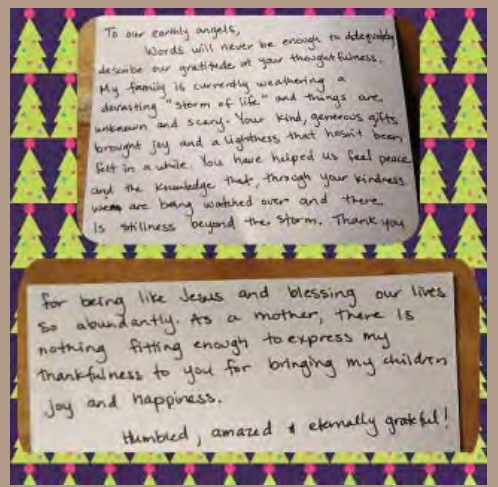 To our earthly angels,
Words will never be enough to adequately
describe our gratitude at your thoughtfulness.
My family is currently weathering a
devasting "storm of life" and things are
unknown and scary. Your kind, generous gifts
brought joy and a lightness that hasn't been
felt in a while. You have helped us feel peace
and the knowledge that, through your kindness
we are being watched over and there
is stillness beyond the storm. Thank you
for being like Jesus and blessing our lives
so abundantly. As a mother, there is
nothing fitting enough to express my
thankfulness to you for bringing my children
joy and happiness.
Humbled, amazed & eternally grateful!